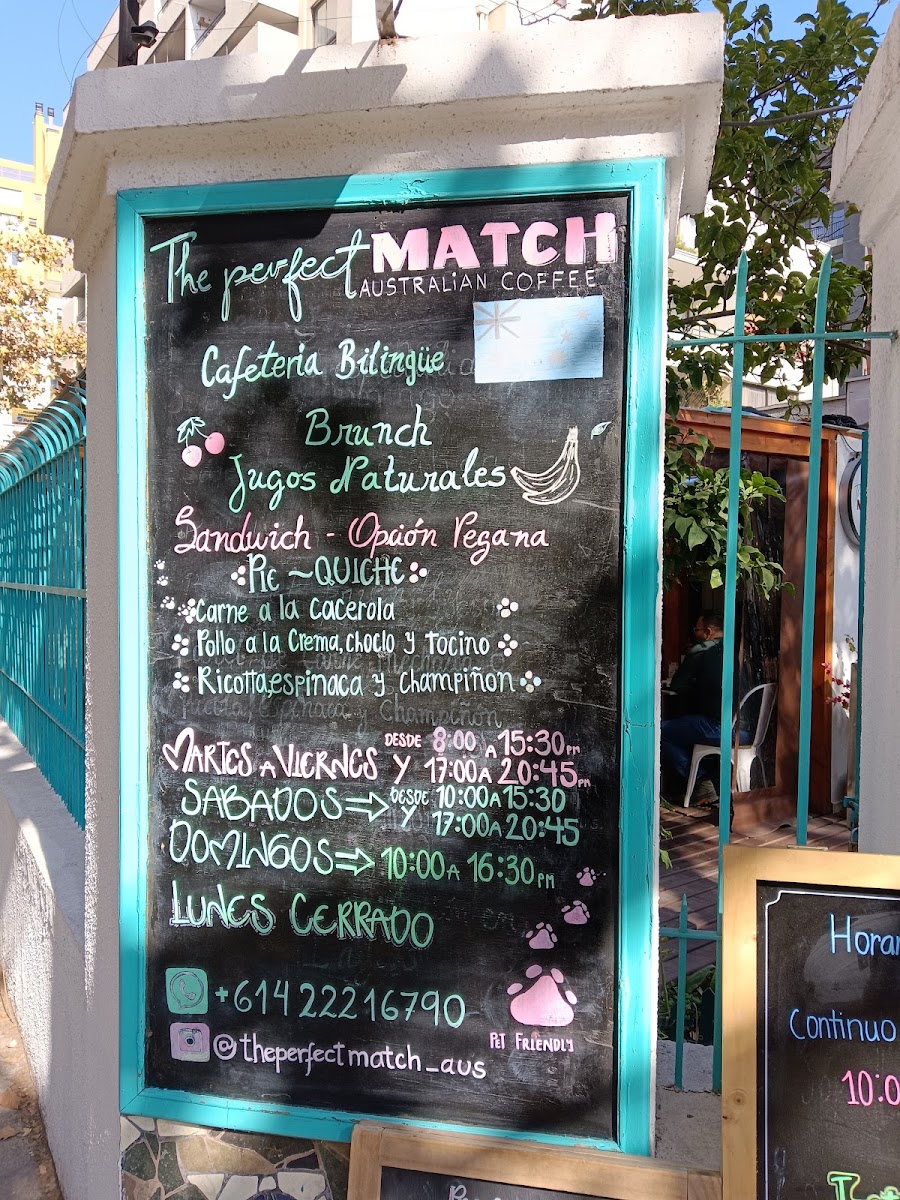 The perfect MATCH
AUSTRALIAN COFFEE
Cafeteria Bilingüe
Brunch
Jugos Naturales
Sandwich - Opción Vegana
PIE ~ QUICHE
Carne a la cacerola
Pollo a la Crema, choclo y Tocino
Ricotta, espinaca y champiñon
MARTES A VIERNES DESDE 8:00 A 15:30 PM
Y 17:00 A 20:45 PM
SABADOS ⇒ DESDE 10:00 A 15:30
Y 17:00 A 20:45
DOMINGOS ⇒ 10:00 A 16:30 PM
LUNES CERRADO
+61422216790
PET FRIENDLY
@theperfectmatch_aus
Horar
Continuo
10:0